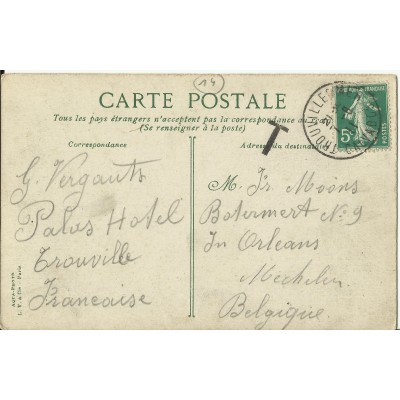 14
CARTE POSTALE
Tous les pays étrangers n'acceptent pas la correspondance au
(Se renseigner à la poste)
Correspondance
Adresse du destinataire
T
5c
POSTES
G. Vergauts
Palas Hotel
Trouville
Francaise
M. Fr. Moons
Botermert No 9
In Orleans
Mechelen
Belgique